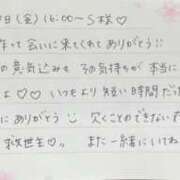 日(金)16:00〜S様♡
作って会いに来てくれてありがとう!!
の意気込みも その気持ちが 本当に
よ♡♡ いつもより短い時間だ
にありがとう 欠くことのできない
救世主♡。 また一緒にいてね